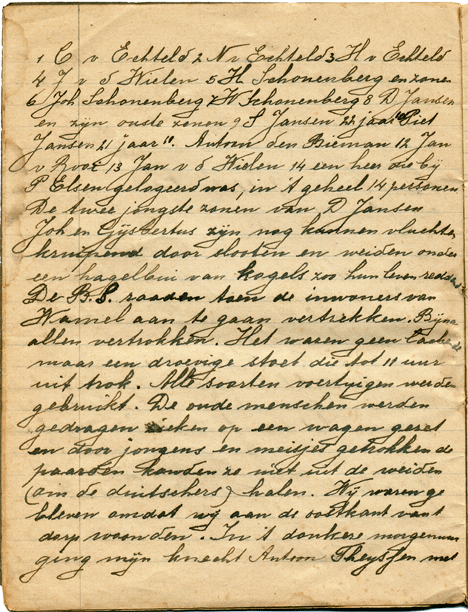 1 C v Echteld 2 N v Echteld 3 H v Echteld
4 J v d Wielen 5 H Schonenberg en zonen
6 Joh Schonenberg 7 W Schonenberg 8 D Jansen
en zijn oudste zonen 9 S Jansen 22 jaar 10 Piet
Jansen 21 jaar 11. Antoon den Bieman 12 Jan
v Rooi 13 Jan v d Wielen 14 een heer die bij
P Elsen gelogeerd was, in 't geheel 14 personen
De twee jongste zonen van D Jansen
Joh en Gijsbertus zijn nog kunnen vluchten
kruipend door slooten en weiden onder
een hagelbui van kogels zoo hun leven redden
De B.S. raaden toen de inwoners van
Hamel aan te gaan vertrekken. Bijna
allen vertrokken. Het waren geen
maar een droevige stoet die tot 11 uur
uit trok. Alle soorten voertuigen werden
gebruikt. De oude menschen werden
gedragen zieken op een wagen gezet
en door jongens en meisjes getrokken de
paarden konden ze niet uit de weiden
(om de duitschers) halen. Wij waren ge
bleven omdat wij aan de oostkant van 't
dorp woonden. In 't donkere morgenuur
ging mijn knecht Antoon Theyssen met